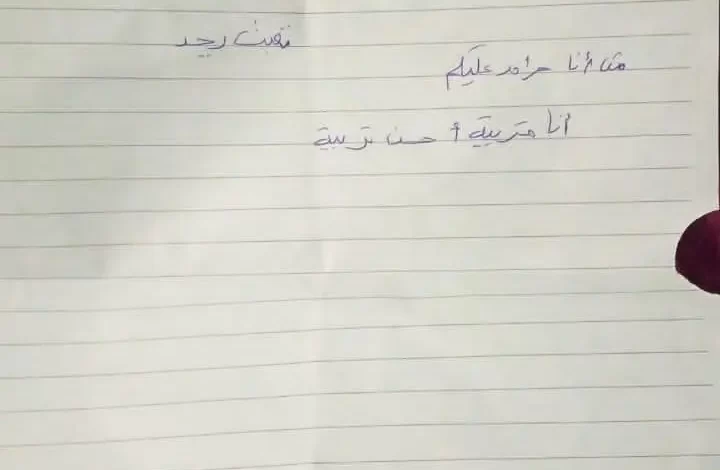 تعبت بجد
مش أنا حرام عليكم
أنا متربية أحسن تربية